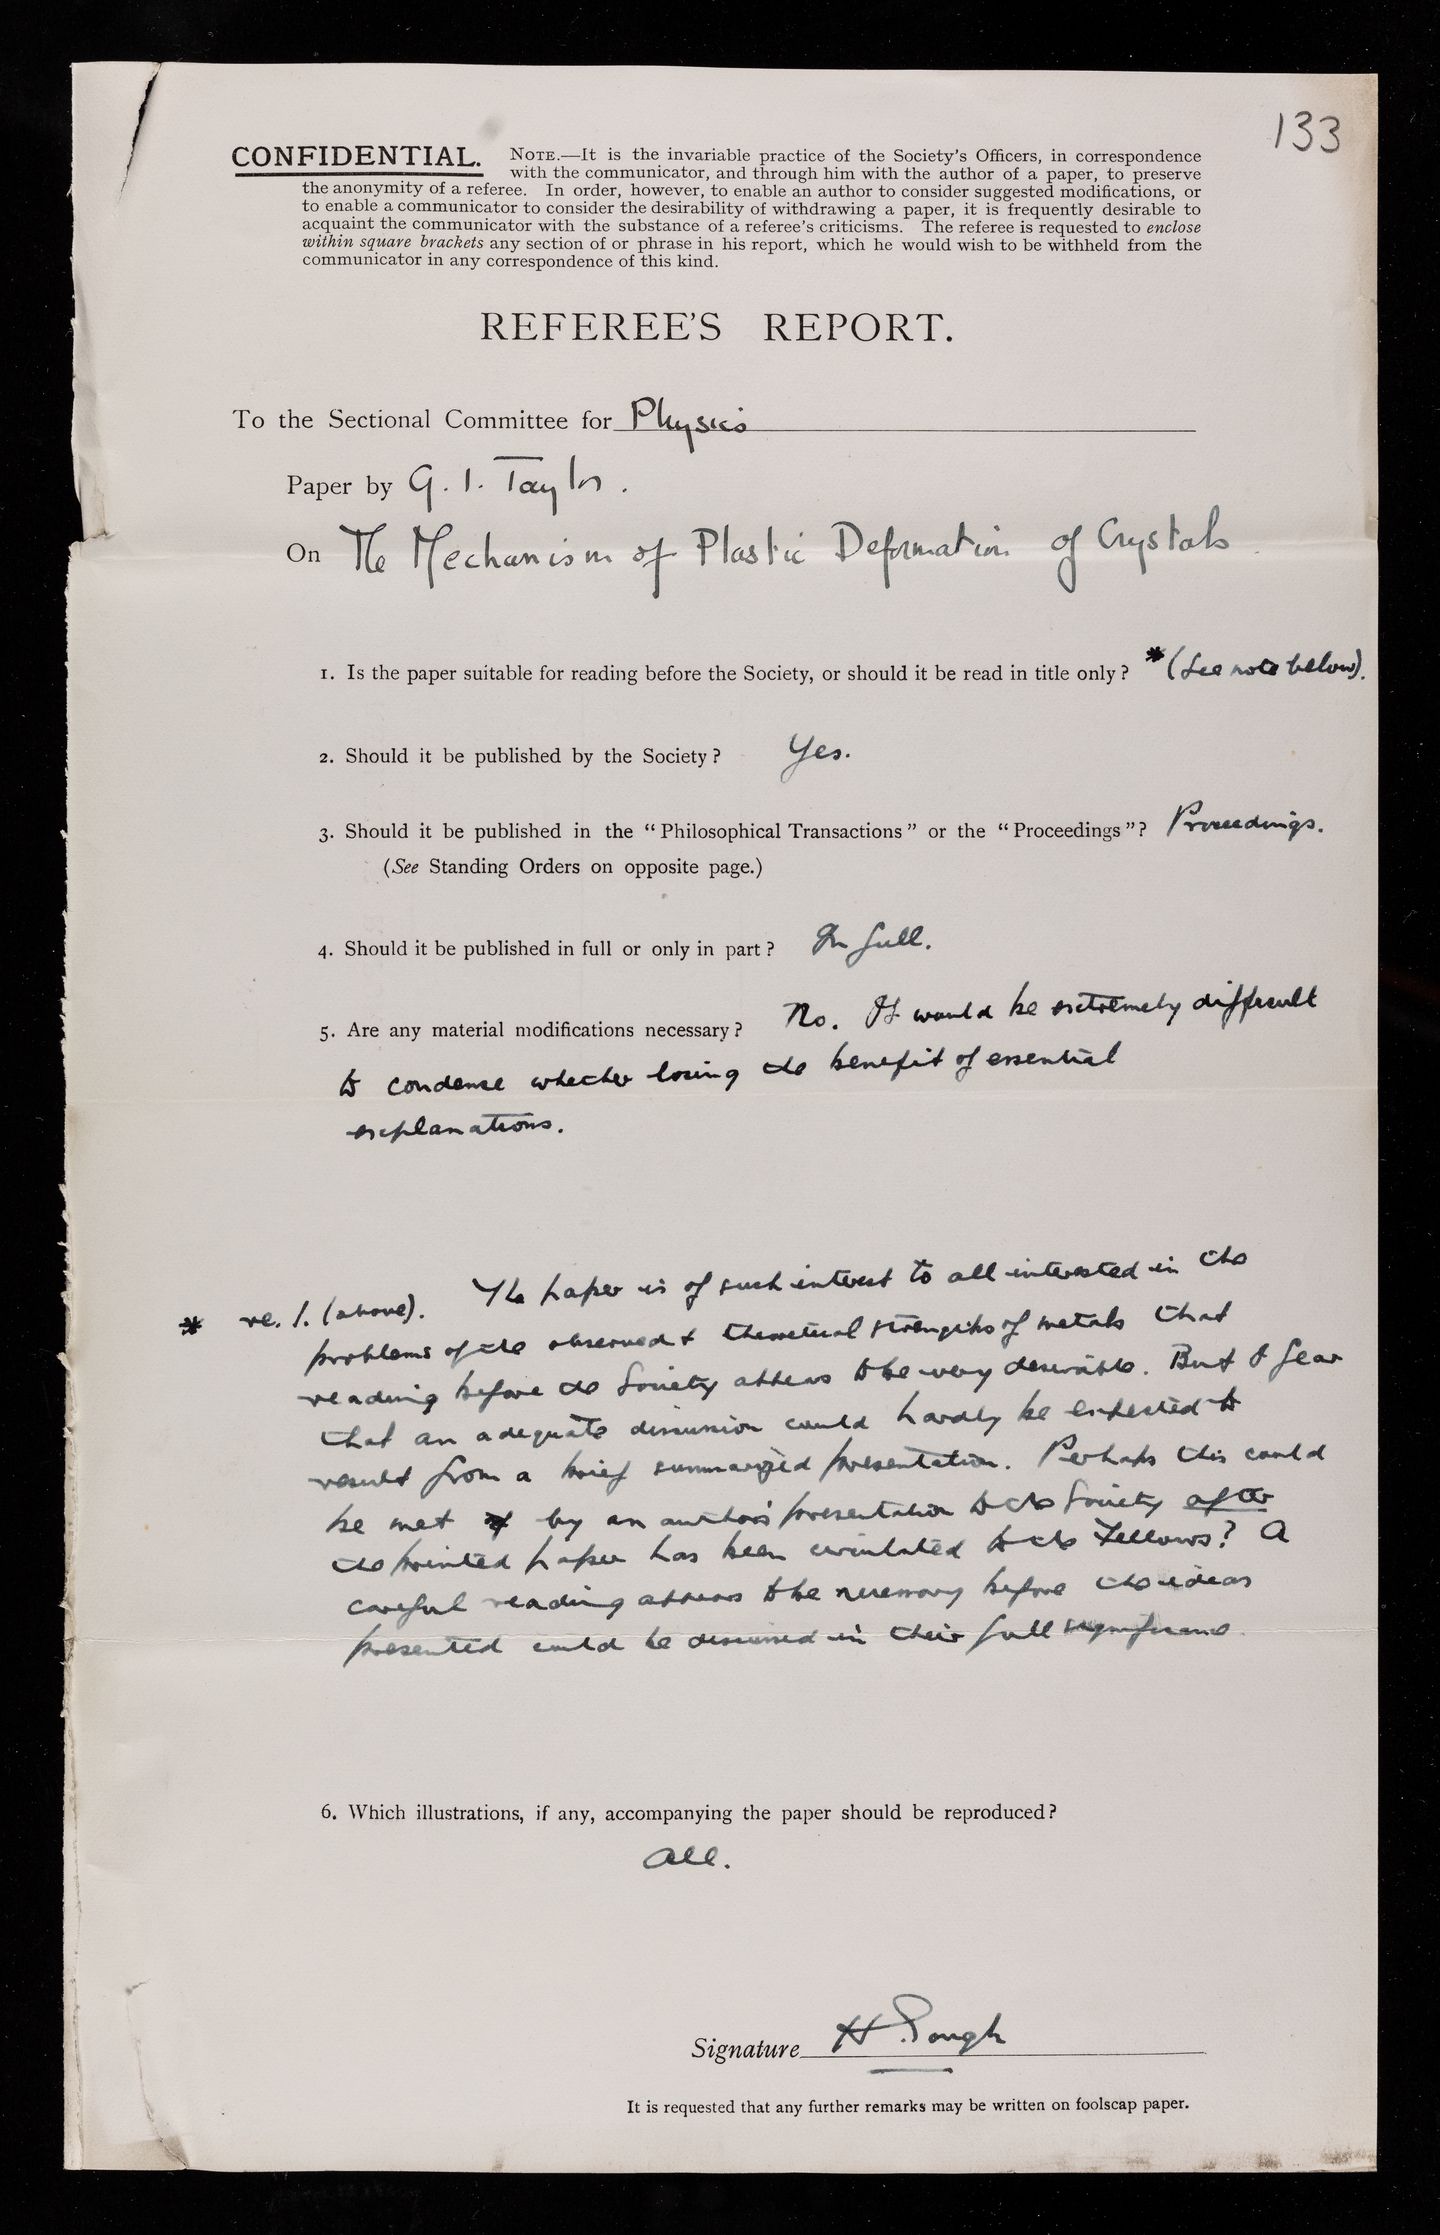 133
CONFIDENTIAL. NOTE.—It is the invariable practice of the Society's Officers, in correspondence
with the communicator, and through him with the author of a paper, to preserve
the anonymity of a referee. In order, however, to enable an author to consider suggested modifications, or
to enable a communicator to consider the desirability of withdrawing a paper, it is frequently desirable to
acquaint the communicator with the substance of a referee's criticisms. The referee is requested to enclose
within square brackets any section of or phrase in his report, which he would wish to be withheld from the
communicator in any correspondence of this kind.
REFEREE'S REPORT.
To the Sectional Committee for Physics
Paper by G. I. Taylor.
On The Mechanism of Plastic Deformation of Crystals
1. Is the paper suitable for reading before the Society, or should it be read in title only? * (See note below).
2. Should it be published by the Society? Yes.
3. Should it be published in the "Philosophical Transactions" or the "Proceedings"? Proceedings.
(See Standing Orders on opposite page.)
4. Should it be published in full or only in part? In full.
5. Are any material modifications necessary? No. It would be extremely difficult
to condense whether losing the benefit of essential
explanations.
* re. 1. (above). The paper is of such interest to all interested in the
problems of the observed & theoretical strengths of metals that
reading before the Society appears to be very desirable. But I fear
that an adequate discussion could hardly be expected to
result from a brief summarized presentation. Perhaps this could
be met by an author's presentation to the Society after
the printed paper has been circulated to the Fellows? A
careful reading appears to be necessary before the ideas
presented could be discussed in their full significance.
6. Which illustrations, if any, accompanying the paper should be reproduced?
All.
Signature H. Gough
It is requested that any further remarks may be written on foolscap paper.